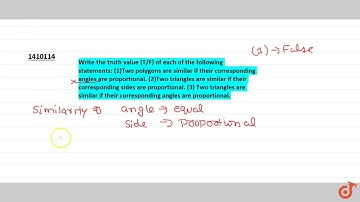 (1) → False
1410114
Write the truth value (T/F) of each of the following
statements: (1)Two polygons are similar if their corresponding
angles are proportional. (2)Two triangles are similar if their
corresponding sides are proportional. (3) Two triangles are
similar if their corresponding angles are proportional.
Similarity ⇒ angle → equal
side → proportional
doubtnut